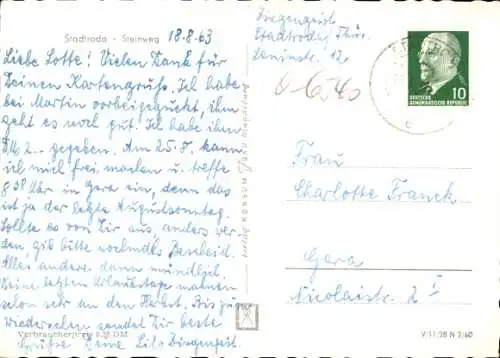 Stadtroda - Steinweg 18.8.63
Liebe Lotte! Vielen Dank für
Deinen Kartengruß. Ich habe
bei Martin vorbeigeguckt, ihm
geht es noch gut. Ich habe ihm
DM 2.- gegeben. Am 25. kann
ich mich frei machen u. treffe
8 Uhr in Gera ein, denn das
ist ja der letzte Augustsonntag.
Sollte es von Dir aus anders wer-
den, gib bitte nochmals Bescheid.
Alles andere dann mündlich.
Meine letzten Urlaubstage mahnen
schon sehr an den Herbst. Bis zum
Wiedersehen sendet Dir beste
Grüße Deine
Verbraucherpreis DM
Verlag KONSUM
Stadtroda/Thür.
Leninstr. 12
10
DEUTSCHE
DEMOKRATISCHE REPUBLIK
Frau
Charlotte Franck
Gera
Nicolaistr. 2 I
V 11/28 N 2/60